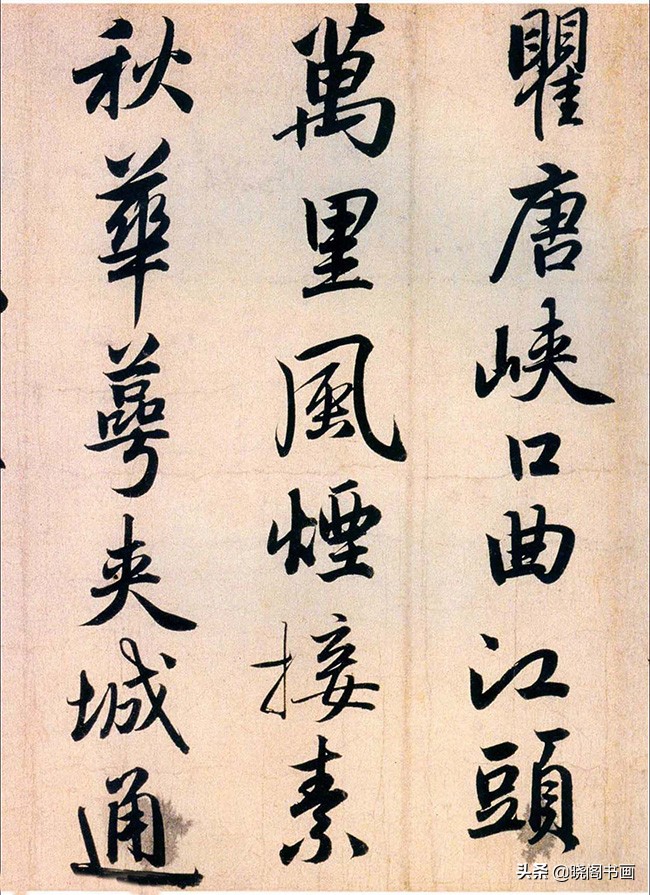 瞿唐峽口曲江頭
萬里風煙接素
秋華萼夾城通
头条 @晓阁书画